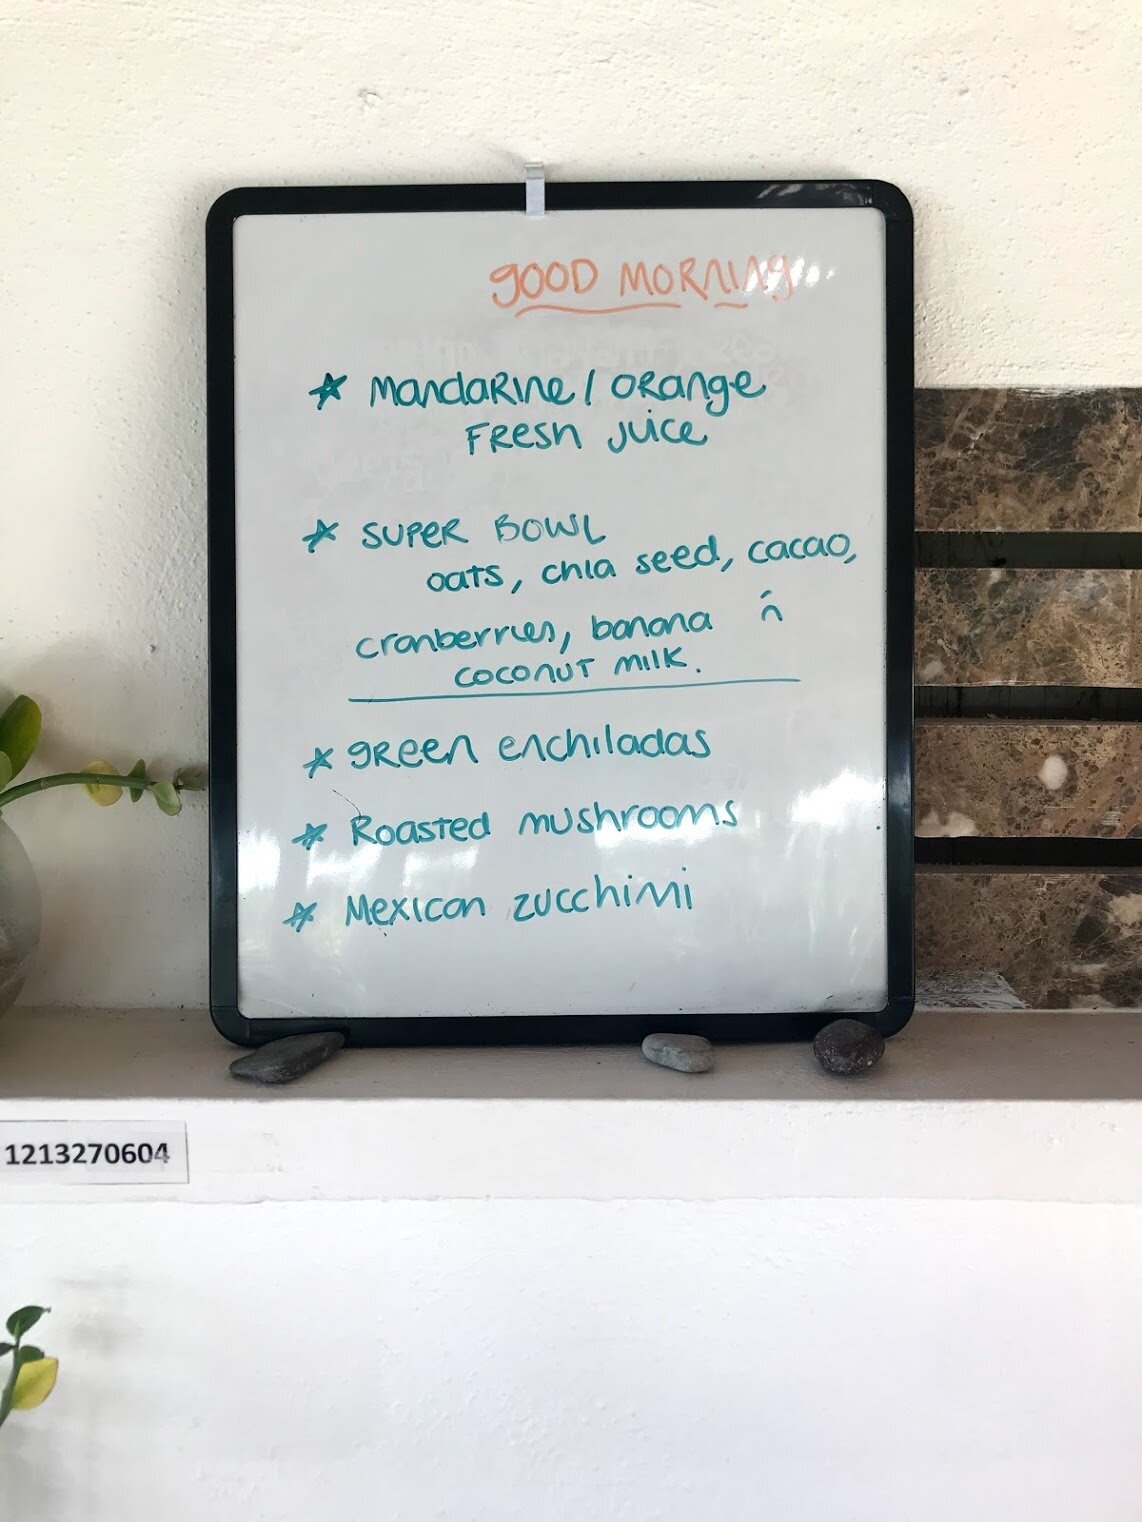 GOOD MORNING
* Mandarine / Orange
Fresh Juice
* SUPER BOWL
oats, chia seed, cacao,
cranberries, banana ń
coconut milk.
* green enchiladas
* Roasted mushrooms
* Mexican zucchini
1213270604